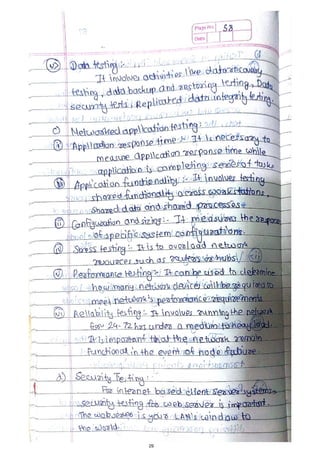 Page No. 53
Date
(v) Data testing :-
It involves activities like data recovery
testing, data backup and restoring testing, Data
security tests, Replicated data integrity testing.
c) Networked application testing :
(i) Application response time :- It is necessary to
measure application response time while
application is completing series of tasks
(ii) Application functionality :- It involves testing
shared functionality across workstations,
shared data and shared processes.
(iii) Configuration and sizing :- It measures the response
of specific system configurations.
(iv) Stress testing :- It is to overload network
resources such as routers or hubs.
(v) Performance testing :- It can be used to determine
how many network devices will be required to
meet network's performance requirements
(vi) Reliability testing :- It involves running the network
for 24-72 hrs under a medium to heavy load.
It is important that the network remain
functional in the event of node failure.
d) Security Testing :
For internet based client server systems,
security testing for web server is important.
The web server is your LAN's window to
the world.
29